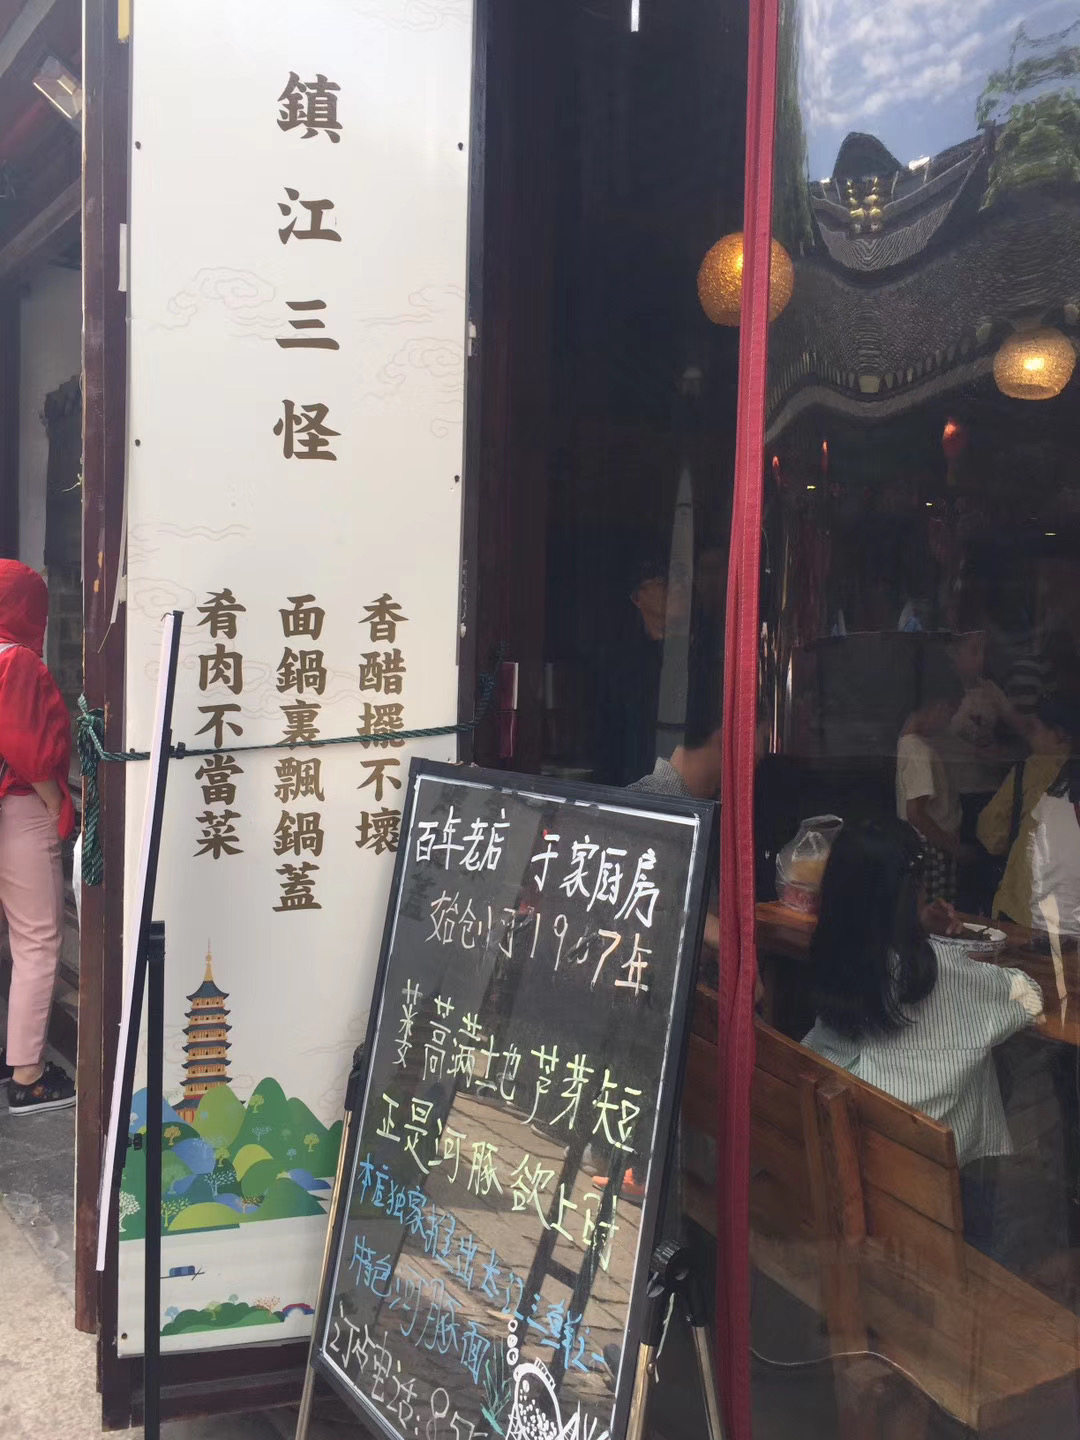 鎮江三怪
香醋擺不壞
面鍋裏飄鍋蓋
肴肉不當菜
百年老店 于家厨房
始创于1907年
蒌蒿满地芦芽短
正是河豚欲上时
本店独家推出长江三鲜之一
特色河豚面
订餐电话:85